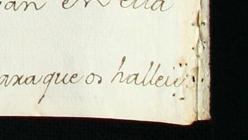 an en ella
axa que os halleis